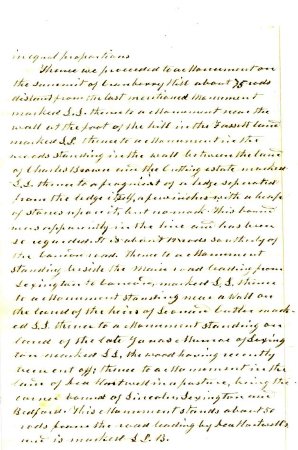 in equal proportions
Thence we proceeded to a Monument on
the summit of Cranberry Hill about 75 rods
distant from the last mentioned Monument
marked L.L. thence to a Monument near the
wall at the foot of the hill in the Fassett land
marked L.L. thence to a Monument in the
woods standing in the wall between the land
of Charles Brown and the Cutting estate marked
L.L. thence to a fragment of a ledge seperated
from the ledge itself, a few inches with a heap
of stones upon it, but no mark. This bound
was apparently in the line and has been
so regarded. It is about rods southerly of
the road. thence to a Monument
standing beside the Main road leading from
Lexington to Concord, marked L.L. thence
to a Monument standing near a wall on
the land of the heirs of Leonard Butler mark-
ed L.L. thence to a Monument standing on
land of the late Jonas Munroe of Lexing
ton marked L.L. the wood having recently
been cut off; thence to a Monument in the
land of Dea Hartwell in a pasture, being the
corner bound of Lincoln, Lexington and
Bedford. This Monument stands about 50
rods from the road leading by Dea Hartwell's
and is marked L.L.B.